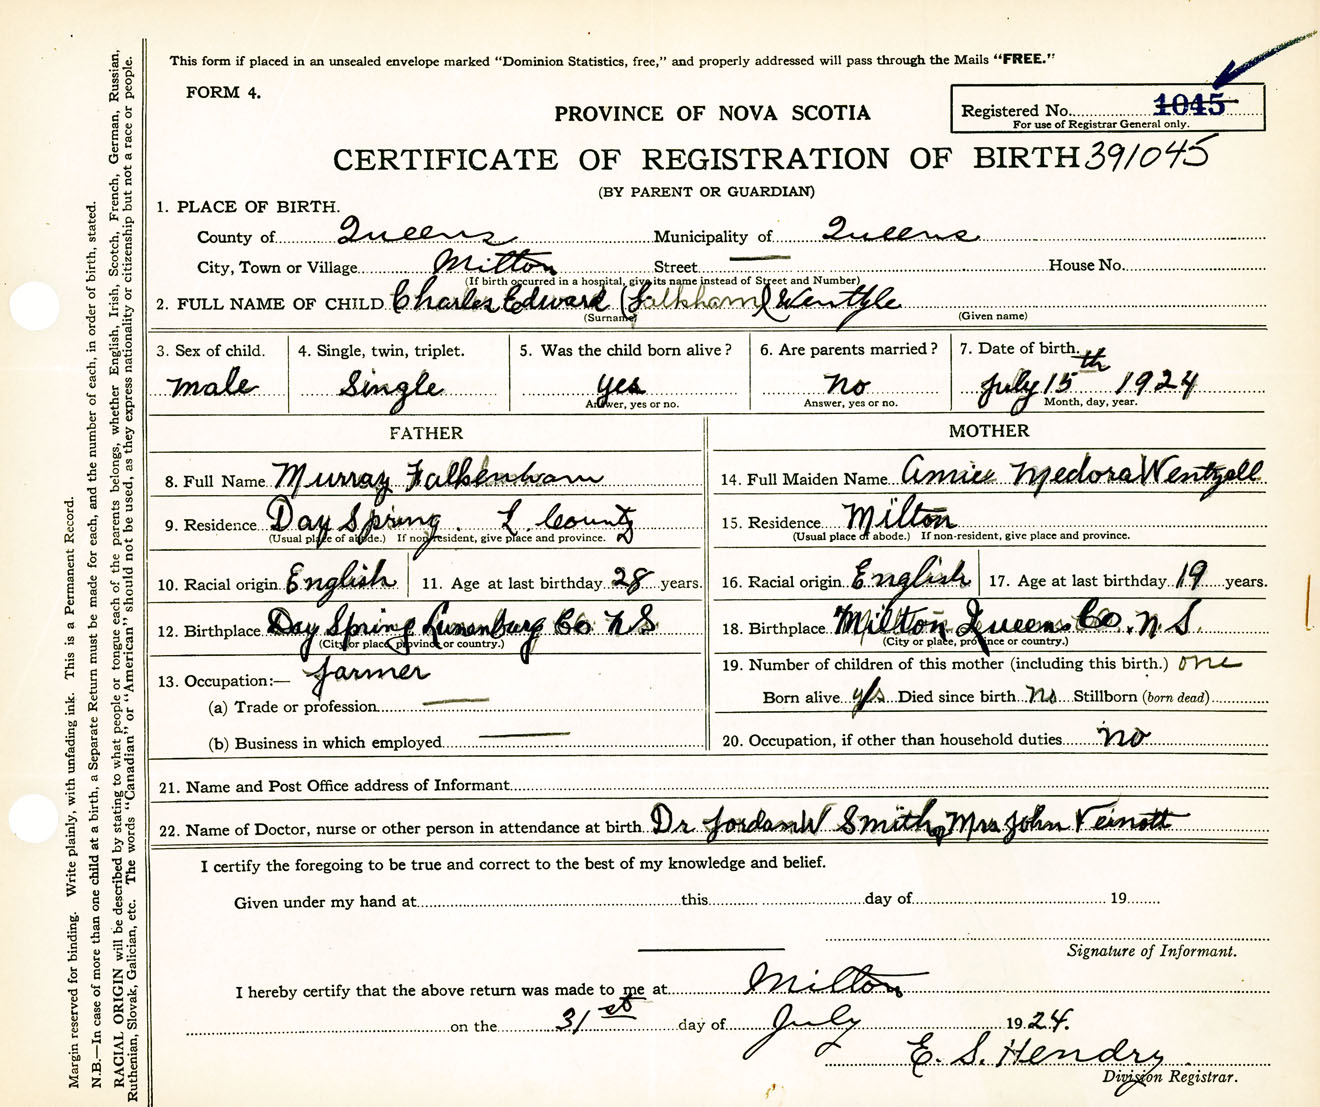 This form if placed in an unsealed envelope marked "Dominion Statistics, free," and properly addressed will pass through the Mails "FREE."
FORM 4.
PROVINCE OF NOVA SCOTIA
Registered No. 1045
For use of Registrar General only.
CERTIFICATE OF REGISTRATION OF BIRTH 391045
(BY PARENT OR GUARDIAN)
1. PLACE OF BIRTH.
County of Queens Municipality of Queens
City, Town or Village Milton Street — House No.
(If birth occurred in a hospital, give its name instead of Street and Number)
2. FULL NAME OF CHILD Charles Edward (Falkham) Wentzle
(Surname) (Given name)
3. Sex of child. 4. Single, twin, triplet. 5. Was the child born alive? 6. Are parents married? 7. Date of birth.
male Single yes no July 15th 1924
Answer, yes or no. Answer, yes or no. Month, day, year.
FATHER
8. Full Name Murray Falkenham
9. Residence Day Spring. L. County
(Usual place of abode.) If non-resident, give place and province.
10. Racial origin English 11. Age at last birthday 28 years.
12. Birthplace Day Spring Lunenburg Co N S
(City or place, province or country.)
13. Occupation:— farmer
(a) Trade or profession —
(b) Business in which employed —
MOTHER
14. Full Maiden Name Annie Medora Wentzell
15. Residence Milton
(Usual place of abode.) If non-resident, give place and province.
16. Racial origin English 17. Age at last birthday 19 years.
18. Birthplace Milton Queens Co. N S.
(City or place, province or country.)
19. Number of children of this mother (including this birth.) one
Born alive yes Died since birth no Stillborn (born dead)
20. Occupation, if other than household duties no
21. Name and Post Office address of Informant
22. Name of Doctor, nurse or other person in attendance at birth Dr Jordan W Smith, Mrs John Veinott
I certify the foregoing to be true and correct to the best of my knowledge and belief.
Given under my hand at this day of 19
Signature of Informant.
I hereby certify that the above return was made to me at Milton
on the 31st day of July 1924.
E. S. Hendry
Division Registrar.
Margin reserved for binding. Write plainly, with unfading ink. This is a Permanent Record.
N.B.—In case of more than one child at a birth, a Separate Return must be made for each, and the number of each, in order of birth, stated.
RACIAL ORIGIN will be described by stating to what people or tongue each of the parents belongs, whether English, Irish, Scotch, French, German, Russian,
Ruthenian, Slovak, Galician, etc. The words "Canadian" or "American" should not be used, as they express nationality or citizenship but not a race or people.